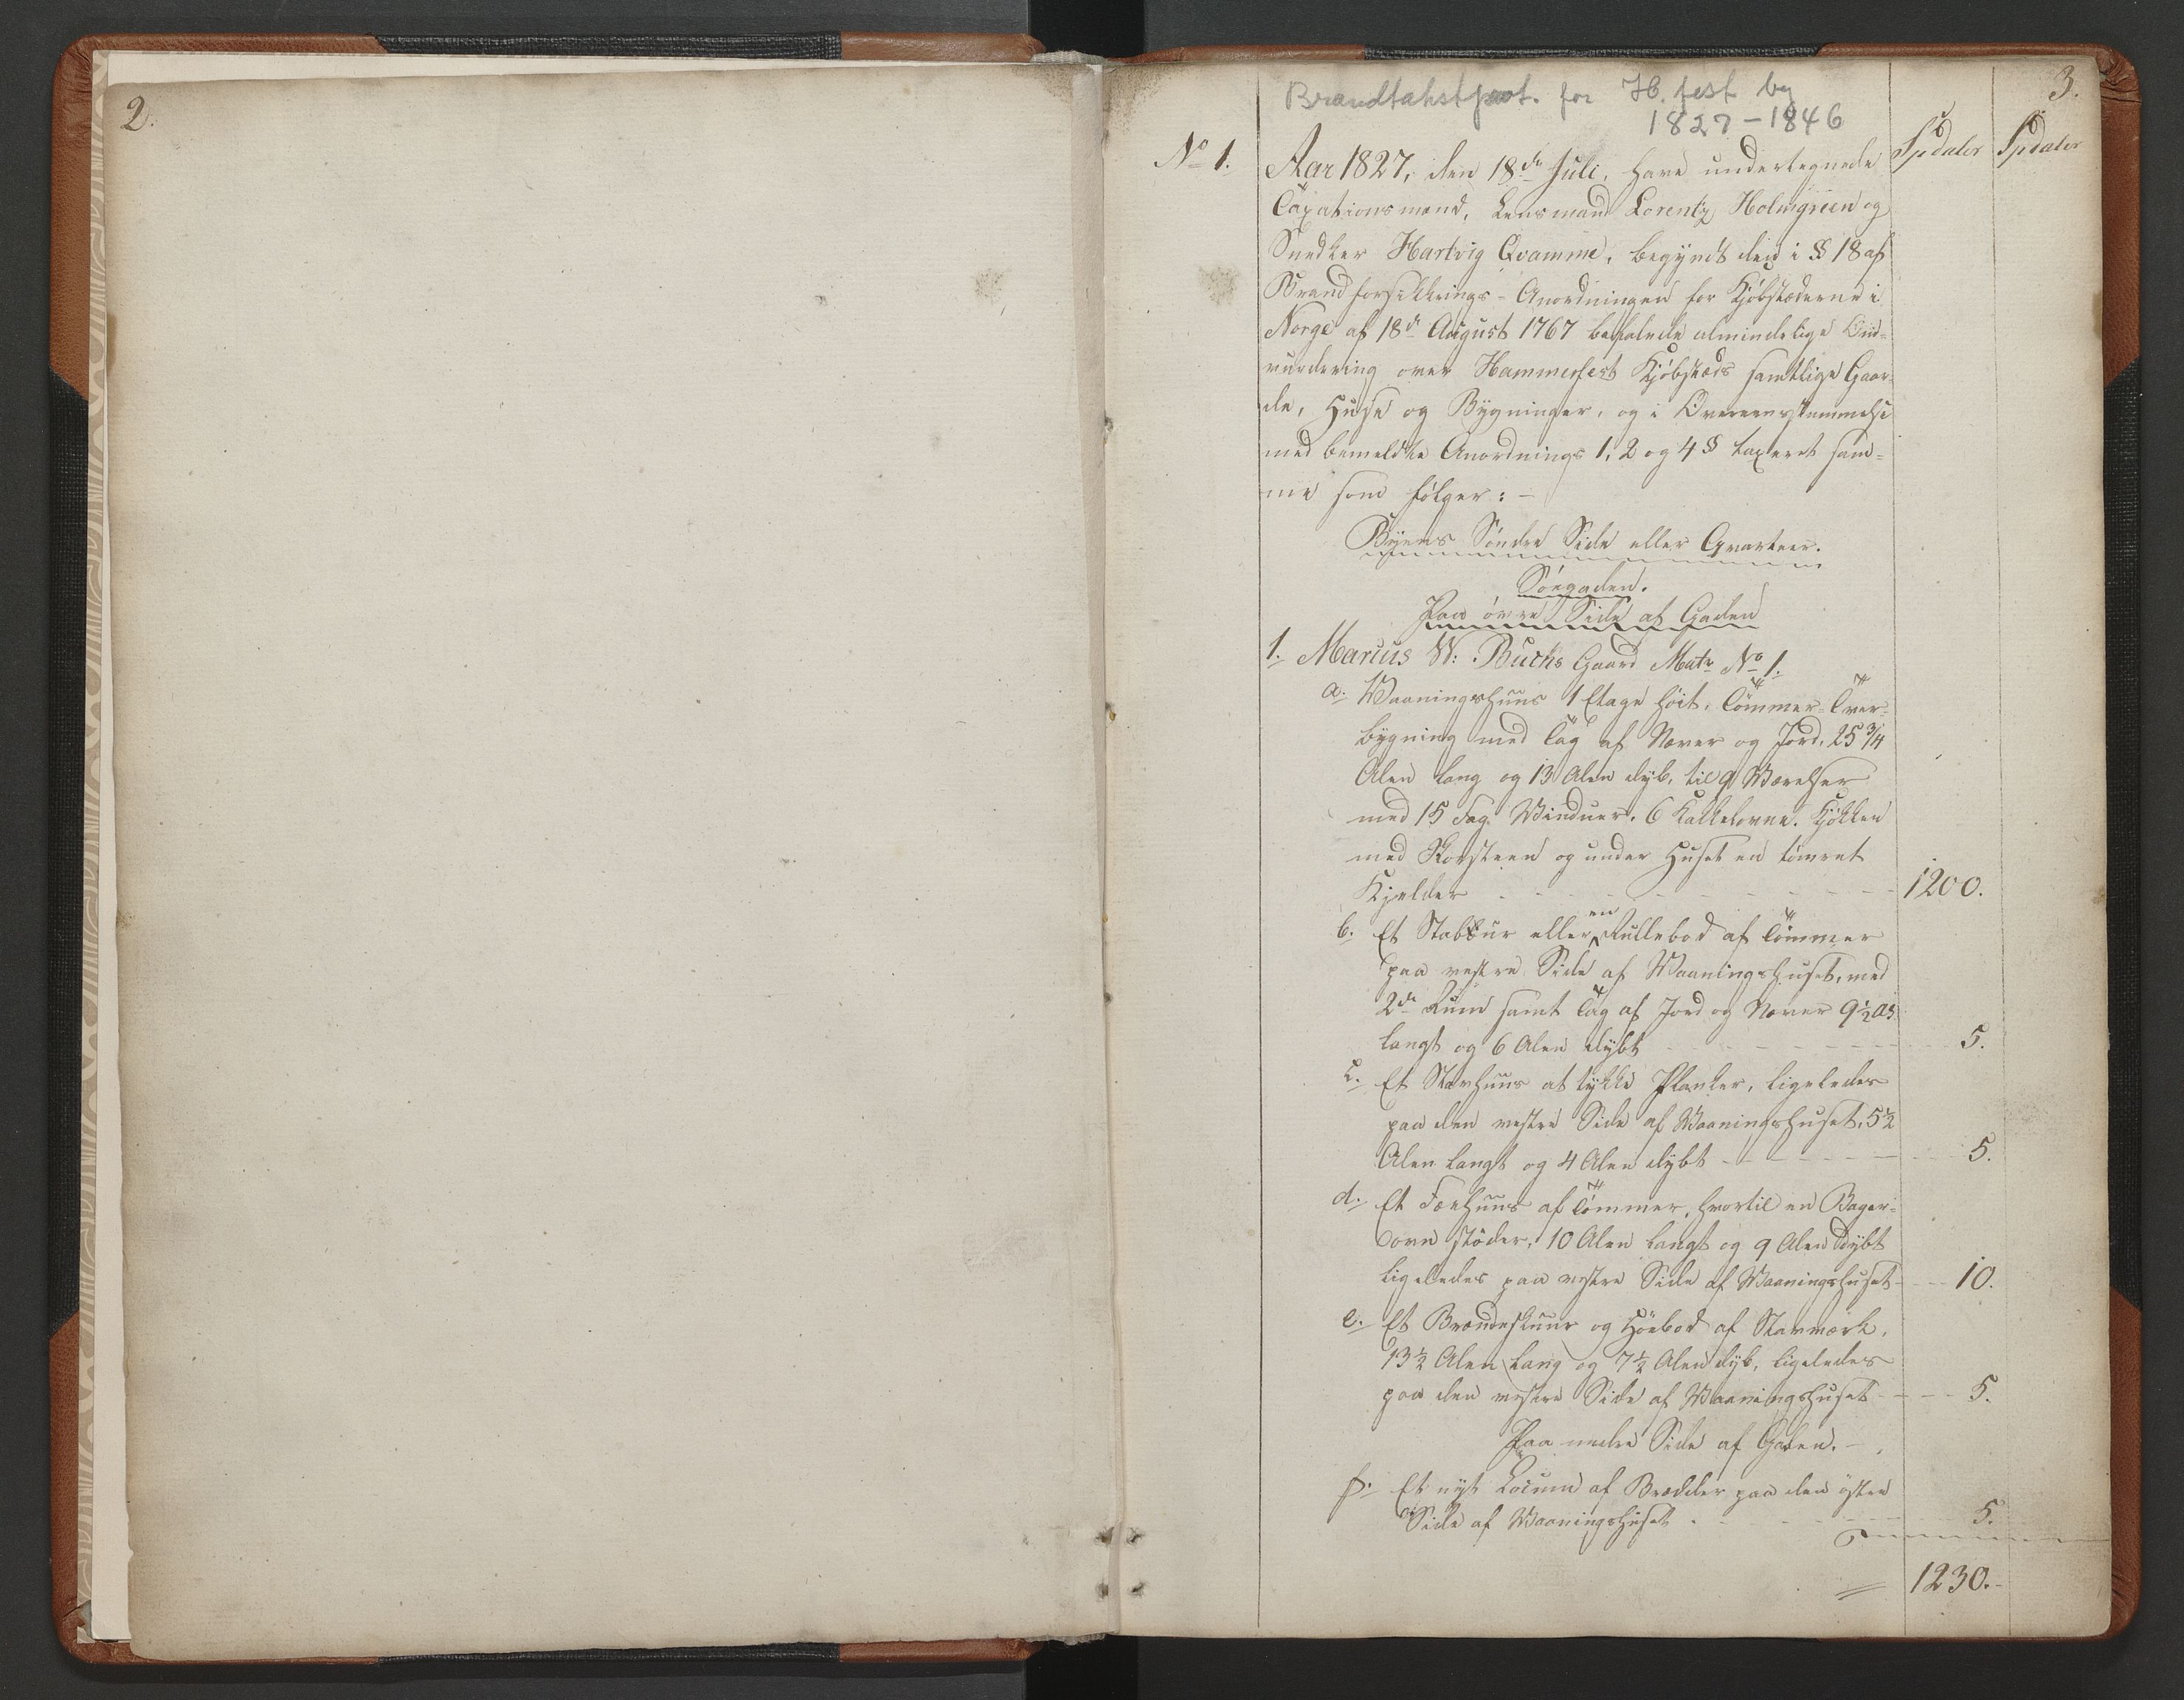 2.
3.
Brandtakstprot. for H.fest by
1827-1846
Spdaler Spdaler
No 1. Aar 1827, den 18de Juli, have undertegnede
Taxationsmænd, Lensmand Lorentz Holmgreen og
Snedker Hartvig Qvamme, begyndt den i § 18 af
Brandforsikkrings-Anordningen for Kjöbstæderne i
Norge af 18de August 1767 befalede almindelige Om-
vurdering over Hammerfest Kjöbstæds samtlige Gaar-
de, Huse og Bygninger, og i Overeensstemmelse
med bemeldte Anordnings 1, 2 og 4 § taxeret sam-
me som fölger: -
Byens Söndre Side eller Qvarteer.
Söegaden.
Paa övre Side af Gaden
1. Marcus W: Buchs Gaard Matr No 1.
a. Vaaningshuus 1 Etage höit, Tömmer-Tver-
bygning med Tag af Næver og Jord, 25 3/4
Alen lang og 13 Alen dyb, til 9 Værelser
med 15 Fag Vinduer, 6 Kakkelovne, Kjökken
med Skorsteen og under Huset en tömret
Kjelder - - - 1200.
b. Et Stabbur eller en Rullebod af Tömmer
paa vestre Side af Vaaningshuset, med
2de Rum samt Tag af Jord og Næver 9 1/2 Al.
langt og 6 Alen dybt - - - 5.
c. Et Storhuus af tykke Planker, ligeledes
paa den vestre Side af Vaaningshuset, 5 1/2
Alen langt og 4 Alen dybt - - - 5.
d. Et Fæehuus af Tömmer, hvortil en Bager-
ovn stöder, 10 Alen langt og 9 Alen dybt
ligeledes paa vestre Side af Vaaningshuset - - 10.
e. Et Brændeskuur og Höebod af Stavværk,
13 1/2 Alen lang og 7 1/2 Alen dyb, ligeledes
paa den vestre Side af Vaaningshuset - - - 5.
Paa nedre Side af Gaden. -
f. Et nyt Locum af Brædder paa den östre
Side af Vaaningshuset - - - 5.
= 1230.-